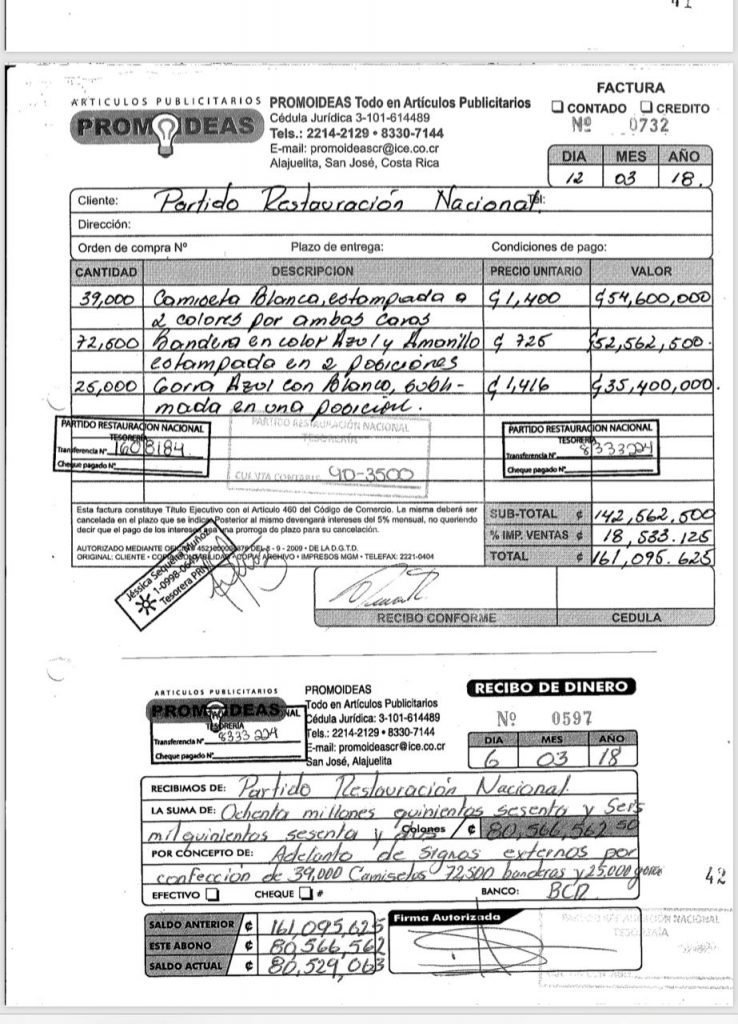 41
ARTICULOS PUBLICITARIOS
PROMOIDEAS
PROMOIDEAS Todo en Artículos Publicitarios
Cédula Jurídica 3-101-614489
Tels.: 2214-2129 • 8330-7144
E-mail: promoideascr@ice.co.cr
Alajuelita, San José, Costa Rica
FACTURA
CONTADO CREDITO
Nº 0732
DIA MES AÑO
12 03 18.
Cliente: Partido Restauración Nacional Tel:
Dirección:
Orden de compra Nº Plazo de entrega: Condiciones de pago:
CANTIDAD DESCRIPCION PRECIO UNITARIO VALOR
39,000 Camiseta Blanca, estampada a ₡1,400 ₡54,600,000
2 colores por ambas caras
72,500 Bandera en color Azul y Amarillo ₡ 725 ₡52,562,500.
estampada en 2 posiciones
25,000 Gorra Azul con Blanco, subli- ₡1,416 ₡35,400,000.
mada en una posición.
PARTIDO RESTAURACIÓN NACIONAL
TESORERÍA
Transferencia Nº 1608184
Cheque pagado Nº
PARTIDO RESTAURACIÓN NACIONAL
TESORERÍA
CUENTA CONTABLE 90-3500
PARTIDO RESTAURACIÓN NACIONAL
TESORERÍA
Transferencia Nº 8333224
Cheque pagado Nº
Esta factura constituye Título Ejecutivo con el Artículo 460 del Código de Comercio. La misma deberá ser
cancelada en el plazo que se indica. Posterior al mismo devengará intereses del 5% mensual, no queriendo
decir que el pago de los intereses sea una prorroga de plazo para su cancelación.
AUTORIZADO MEDIANTE OFICIO 4521000 DEL 8 - 9 - 2009 - DE LA D.G.T.D.
ORIGINAL: CLIENTE • COPIA: CONTABILIDAD • COPIA: ARCHIVO • IMPRESOS MGM • TELEFAX: 2221-0404
SUB-TOTAL ¢ 142,562,500
% IMP. VENTAS ¢ 18,533.125
TOTAL ¢ 161,095.625
Jéssica Sequeira Muñoz
1-0998-064
Tesorera PRN
RECIBO CONFORME CEDULA
ARTICULOS PUBLICITARIOS
PROMOIDEAS
NAL
TESORERÍA
Transferencia Nº 8333 224
Cheque pagado Nº
PROMOIDEAS
Todo en Artículos Publicitarios
Cédula Jurídica: 3-101-614489
Tels.: 2214-2129 • 8330-7144
E-mail: promoideascr@ice.co.cr
San José, Alajuelita
RECIBO DE DINERO
Nº 0597
DIA MES AÑO
6 03 18
RECIBIMOS DE: Partido Restauración Nacional.
LA SUMA DE: Ochenta millones quinientos sesenta y Seis
mil quinientos sesenta y dos Colones / ¢ 80,566,562.50
POR CONCEPTO DE: Adelanto de Signos externos por
confección de 39,000 Camisetas 72,500 banderas y 25.000 gorras
EFECTIVO CHEQUE # BANCO: BCR
42
SALDO ANTERIOR ¢ 161,095,625
ESTE ABONO ¢ 80,566,562
SALDO ACTUAL ¢ 80,529,063
Firma Autorizada
PARTIDO RESTAURACIÓN NACIONAL
TESORERÍA